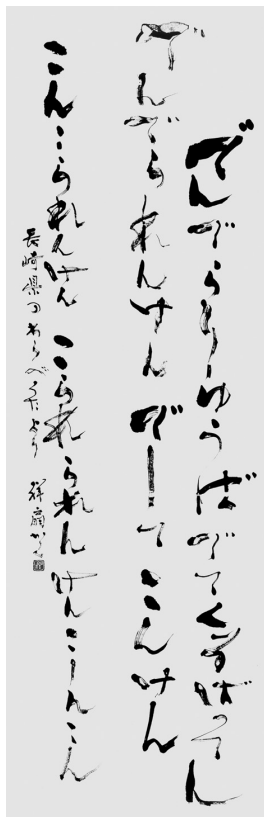 でんでらりゅうばでてくるばってん
でんでられんけんでーてこんけん
こんこられんけん こられられんけんこーんこん
長崎県のわらべうたより 祥扇かく